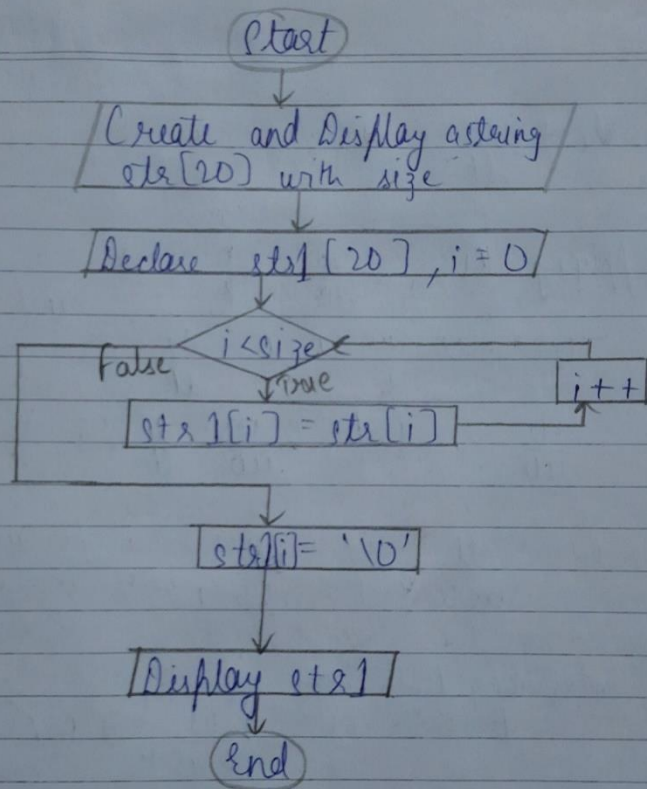 Start
Create and Display a string
str[20] with size
Declare str1[20], i = 0
i<size
False
True
i++
str1[i] = str[i]
str1[i]= '\0'
Display str1
End